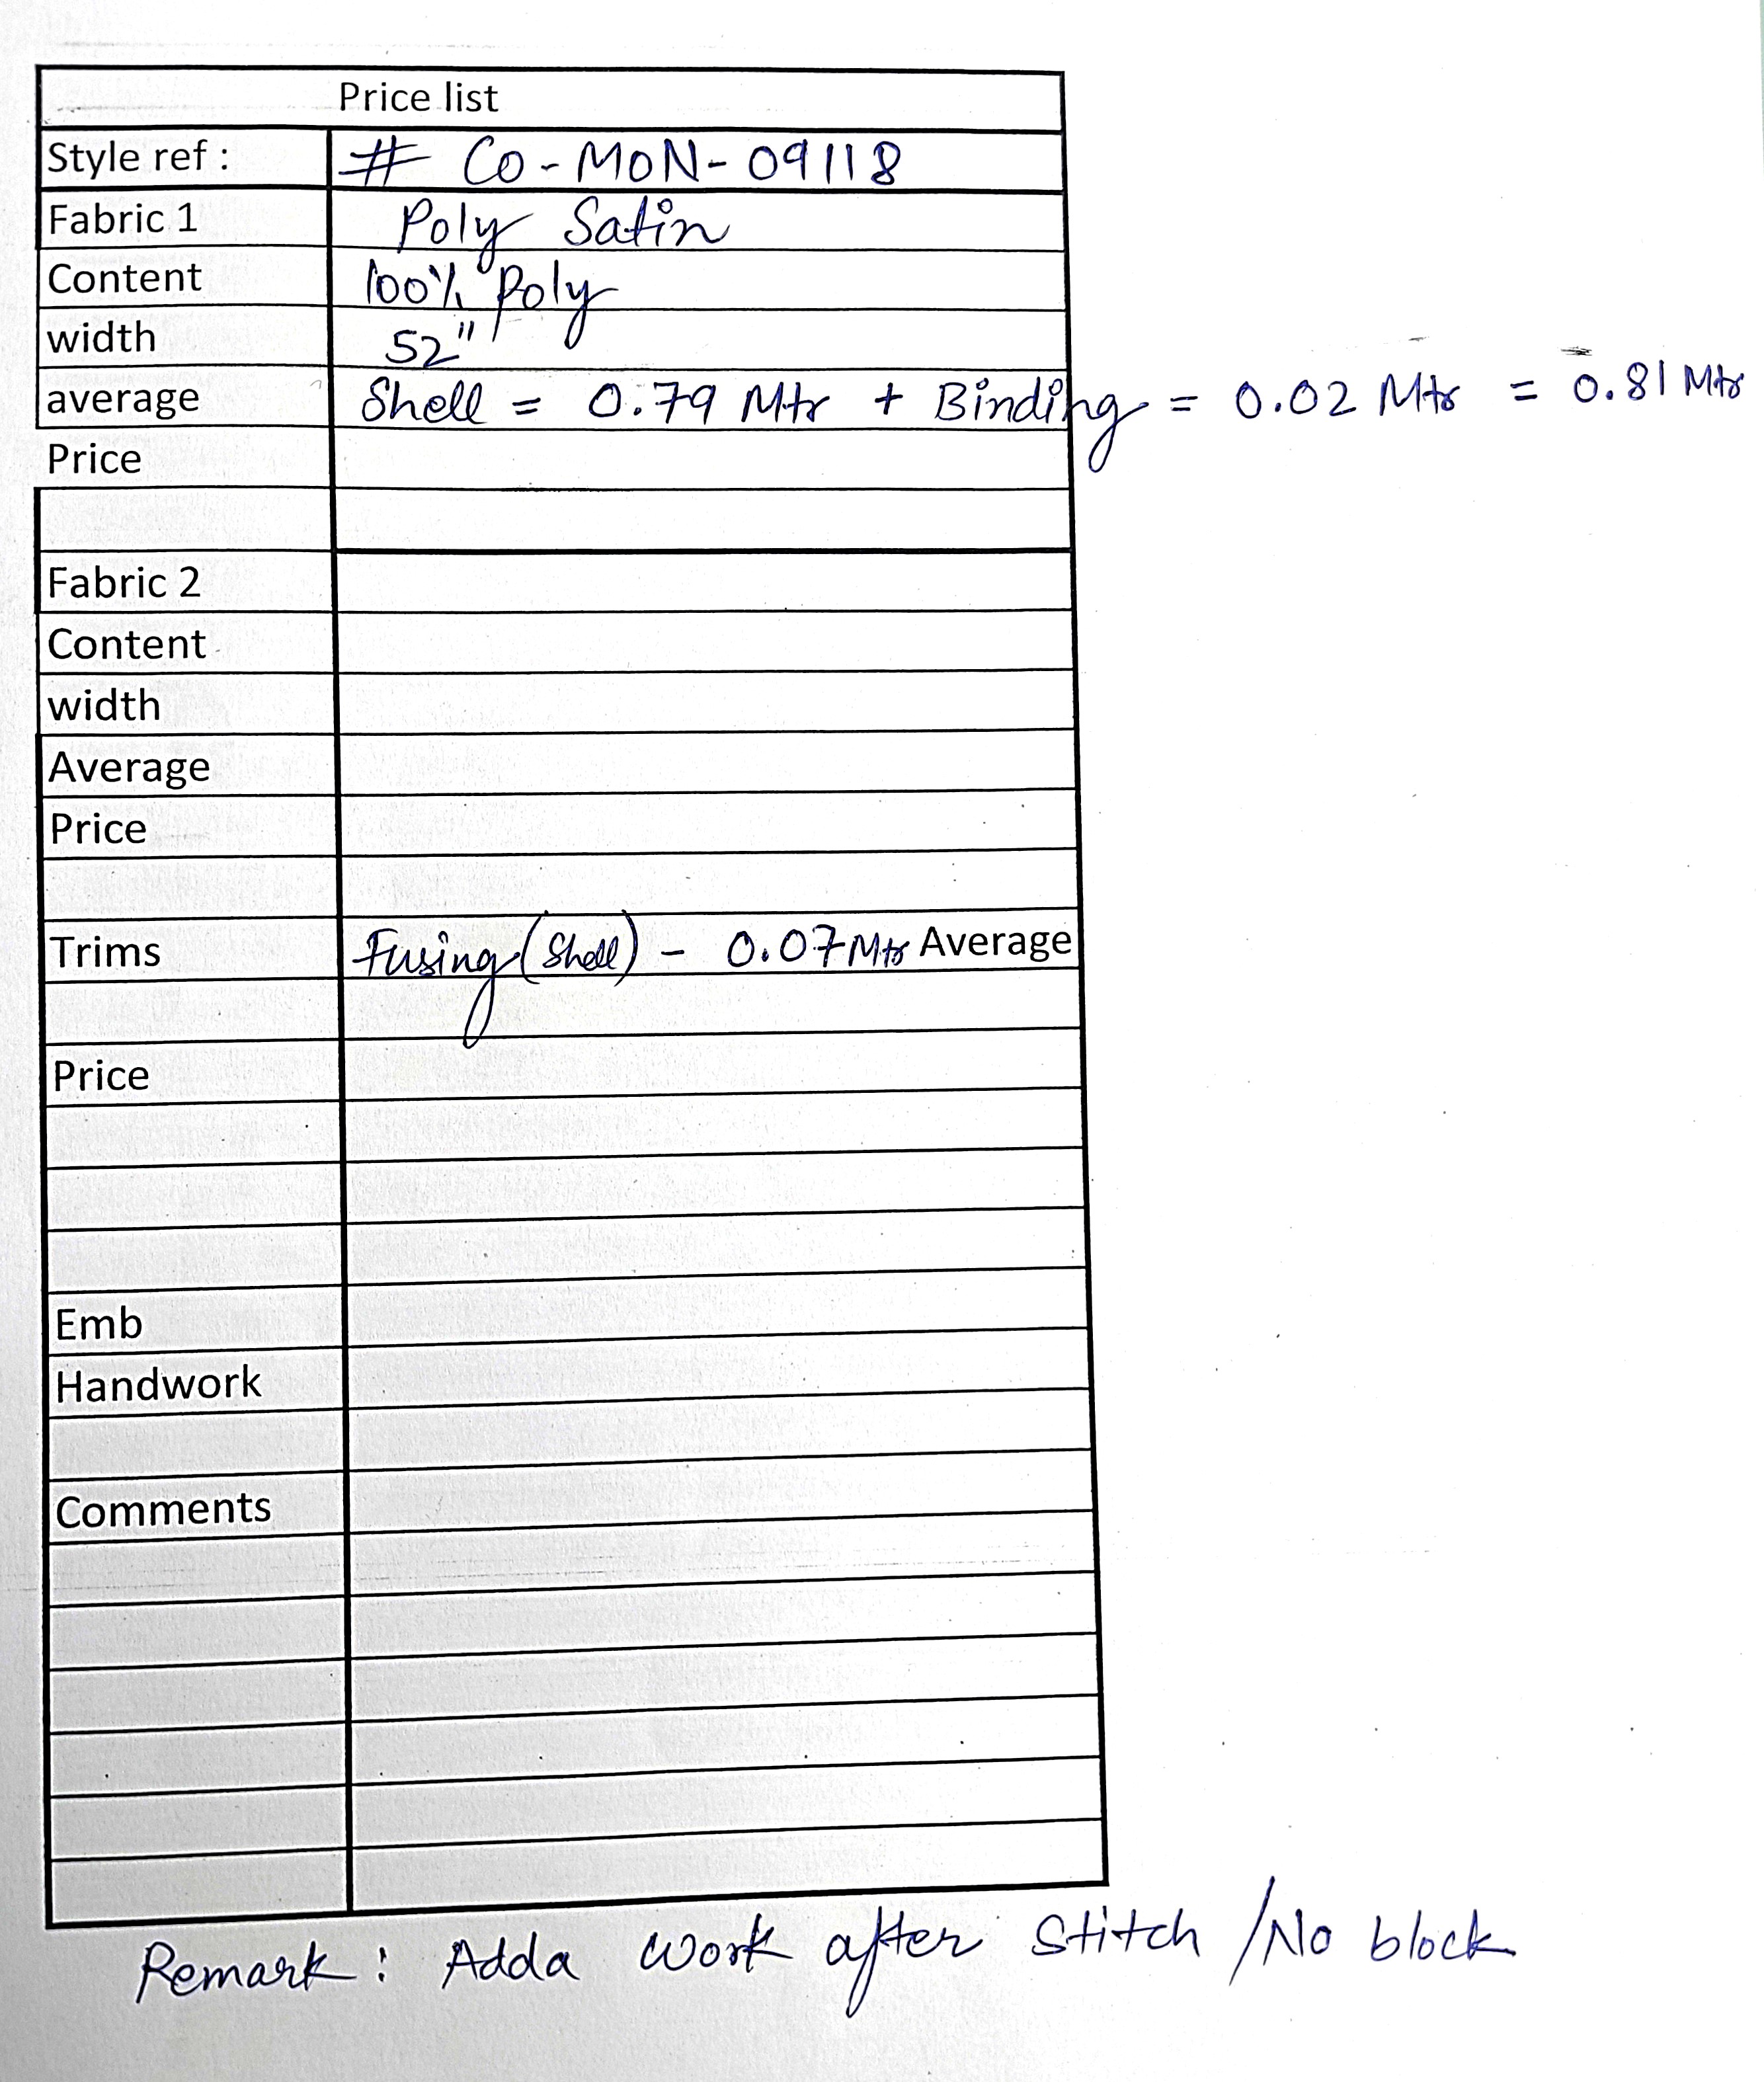 Price list
Style ref : # CO-MON-09118
Fabric 1 Poly Satin
Content 100% Poly
width 52"
average Shell = 0.79 Mtr + Binding = 0.02 Mtr = 0.81 Mtr
Price
Fabric 2
Content
width
Average
Price
Trims Fusing (Shell) - 0.07 Mtr Average
Price
Emb
Handwork
Comments
Remark : Adda work after stitch / No block